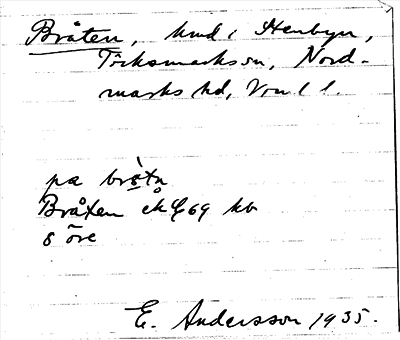 Bråten, hmd i Stenbyn,
Töcksmarks sn, Nord-
marks hd, Vrml l.
pa bròtn
Bråten ek G69 kb
8 öre
E. Andersson 1935.